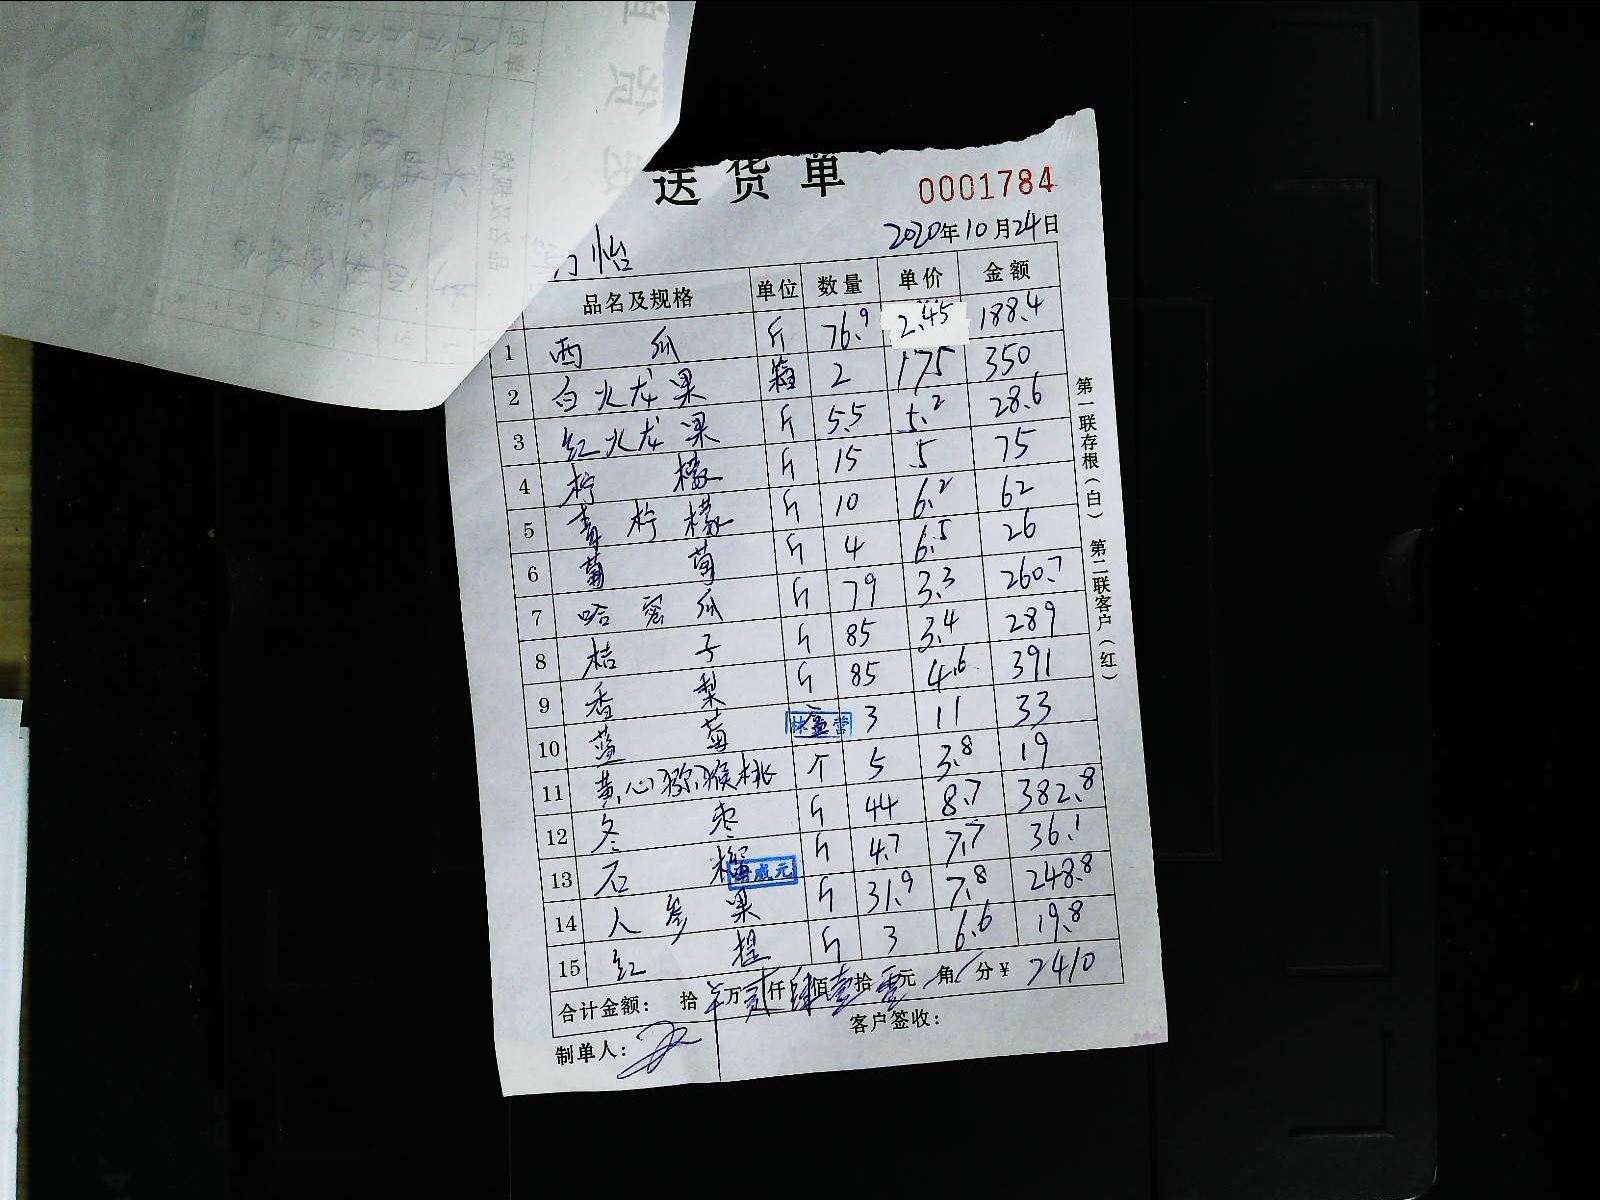 送货单 0001784
2020年10月24日
怡
品名及规格 单位 数量 单价 金额
1 西瓜 斤 76.9 2.45 188.4
2 白火龙果 箱 2 175 350
3 红火龙果 斤 5.5 5.2 28.6
4 柠檬 斤 15 5 75
5 青柠檬 斤 10 6.2 62
6 葡萄 斤 4 6.5 26
7 哈密瓜 斤 79 3.3 260.7
8 桔子 斤 85 3.4 289
9 香梨 斤 85 4.6 391
10 蓝莓 盒 3 11 33
11 黄心猕猴桃 个 5 3.8 19
12 冬枣 斤 44 8.7 382.8
13 石榴 斤 4.7 7.7 36.1
14 人参果 斤 31.9 7.8 248.8
15 红提 斤 3 6.6 19.8
合计金额： 拾 万贰仟肆佰壹拾零元 角 分¥ 2410
制单人： 客户签收：
第一联存根（白） 第二联客户（红）